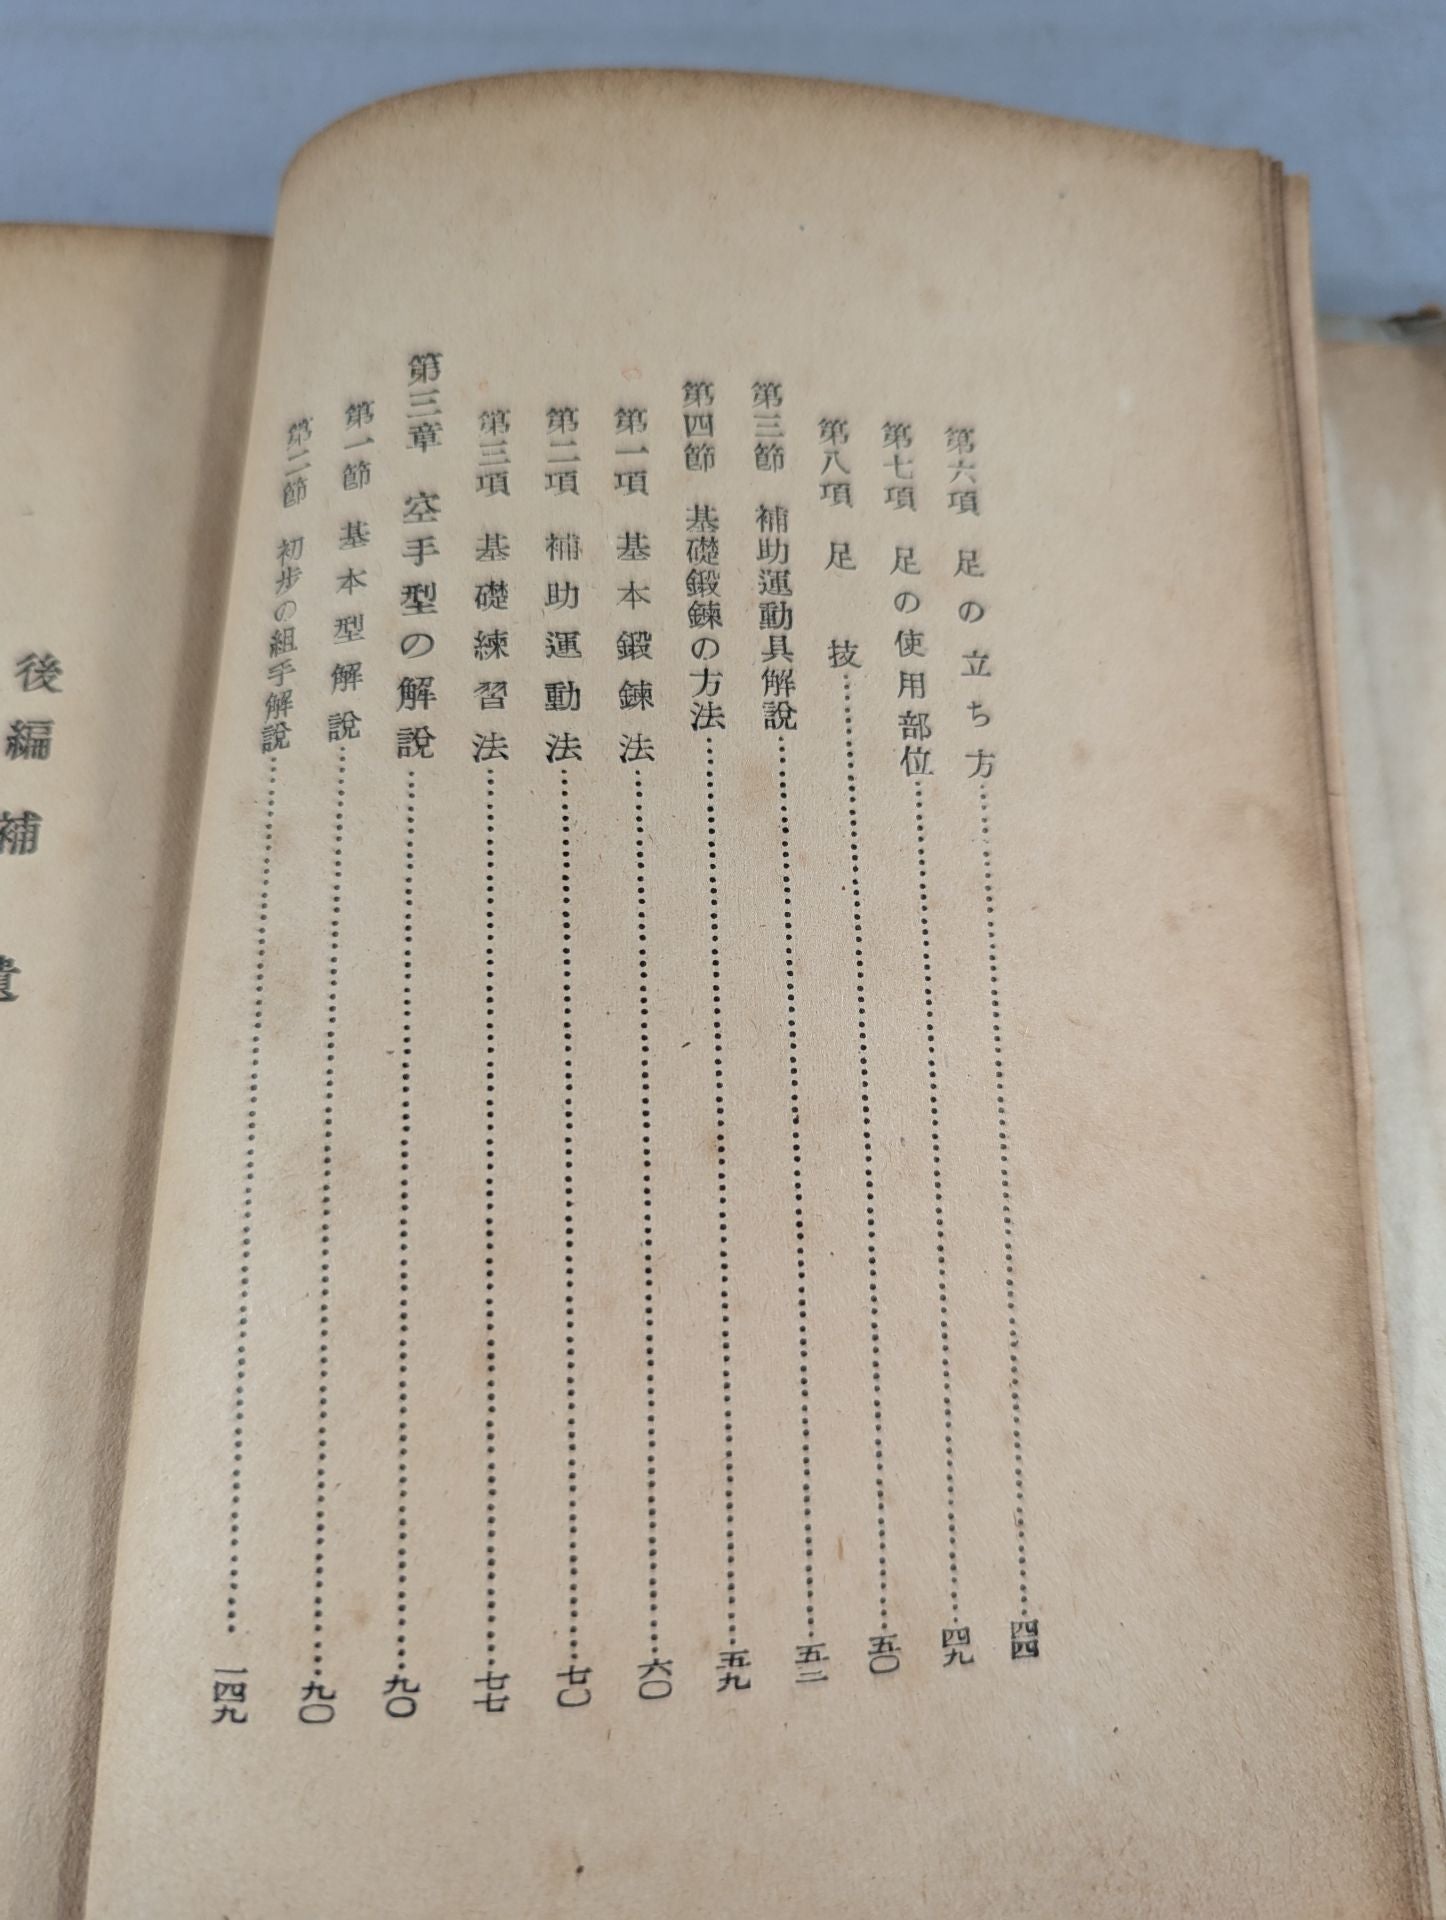 第六項 足の立ち方……四四
第七項 足の使用部位……四九
第八項 足技……五〇
第三節 補助運動具解說……五二
第四節 基礎鍛鍊の方法……五九
第一項 基本鍛鍊法……六〇
第二項 補助運動法……七〇
第三項 基礎練習法……七七
第三章 空手型の解說……九〇
第一節 基本型解說……九〇
第二節 初步の組手解說……一四九
後編 補遺